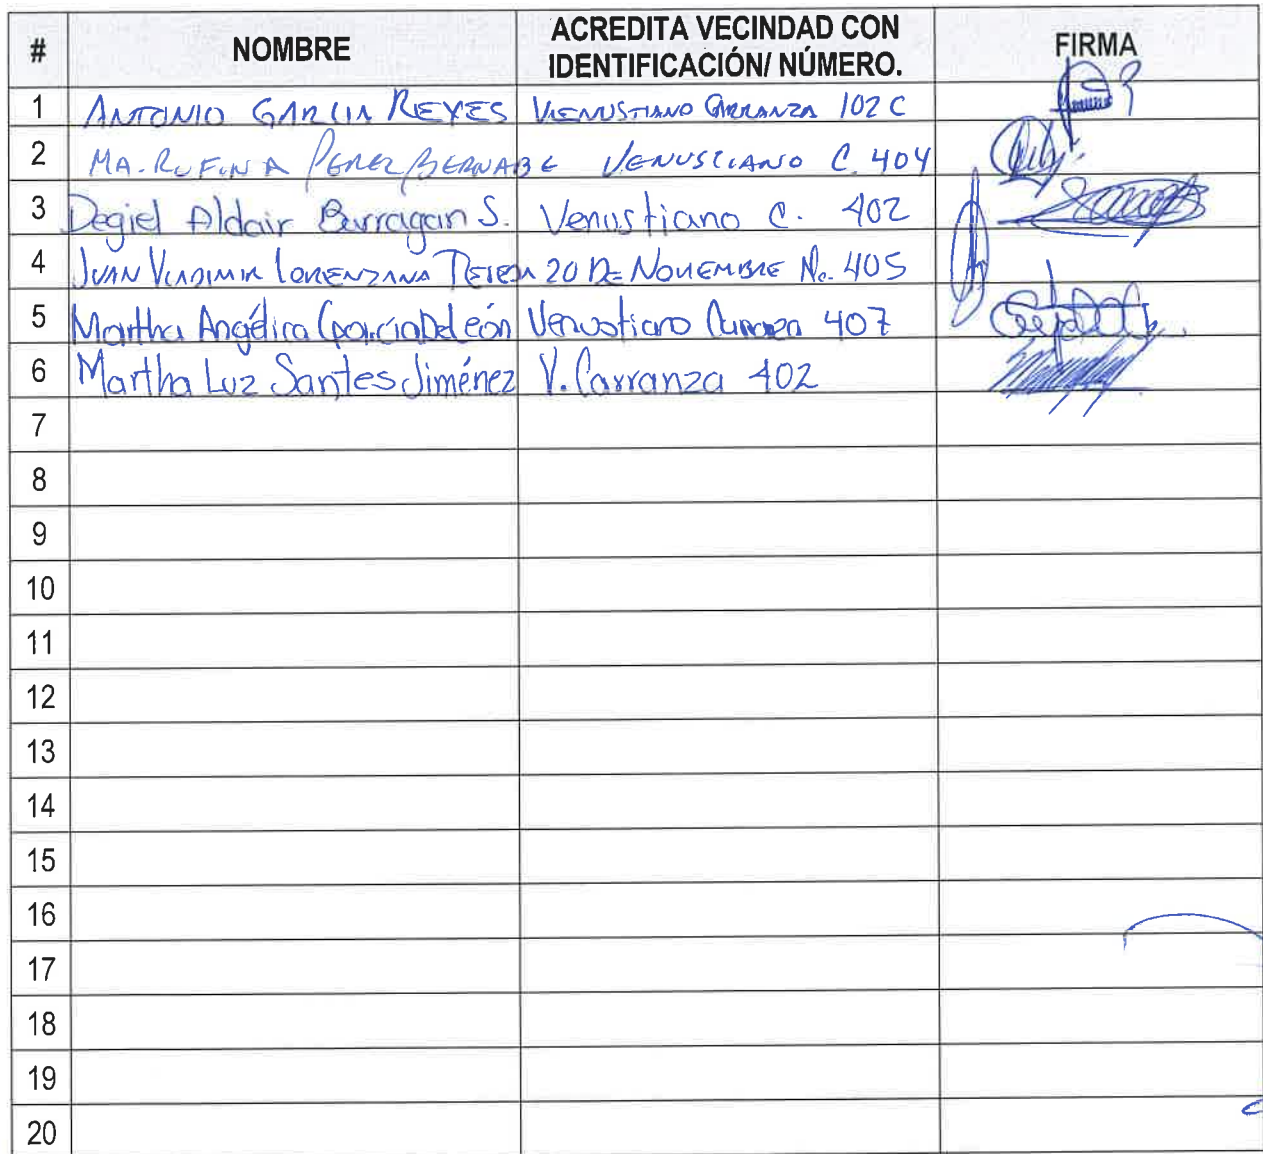 # NOMBRE ACREDITA VECINDAD CON IDENTIFICACIÓN/ NÚMERO. FIRMA
1 ANTONIO GARCIA REYES VENUSTIANO CARRANZA 102 C
2 MA. RUFINA PEREZ BERNABE VENUSTIANO C. 404
3 Degiel Aldair Barragan S. Venustiano C. 402
4 JUAN VLADIMIR LORENZANA 20 DE NOVIEMBRE No. 405
5 Martha Angélica García De León Venustiano Carranza 407
6 Martha Luz Santes Jiménez V. Carranza 402
7
8
9
10
11
12
13
14
15
16
17
18
19
20